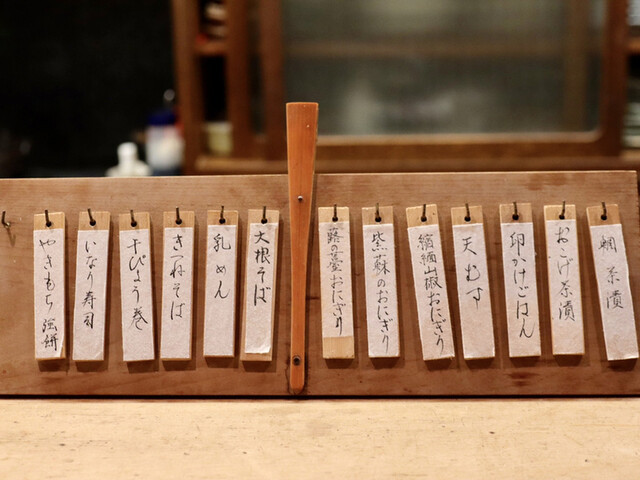 鯛茶漬
おかげ茶漬
卵かけごはん
天むす
縮緬山椒おにぎり
紫蘇のおにぎり
蕗の薹おにぎり
大根そば
乳めん
きつねそば
干ぴょう巻
いなり寿司
やきもち 強餅